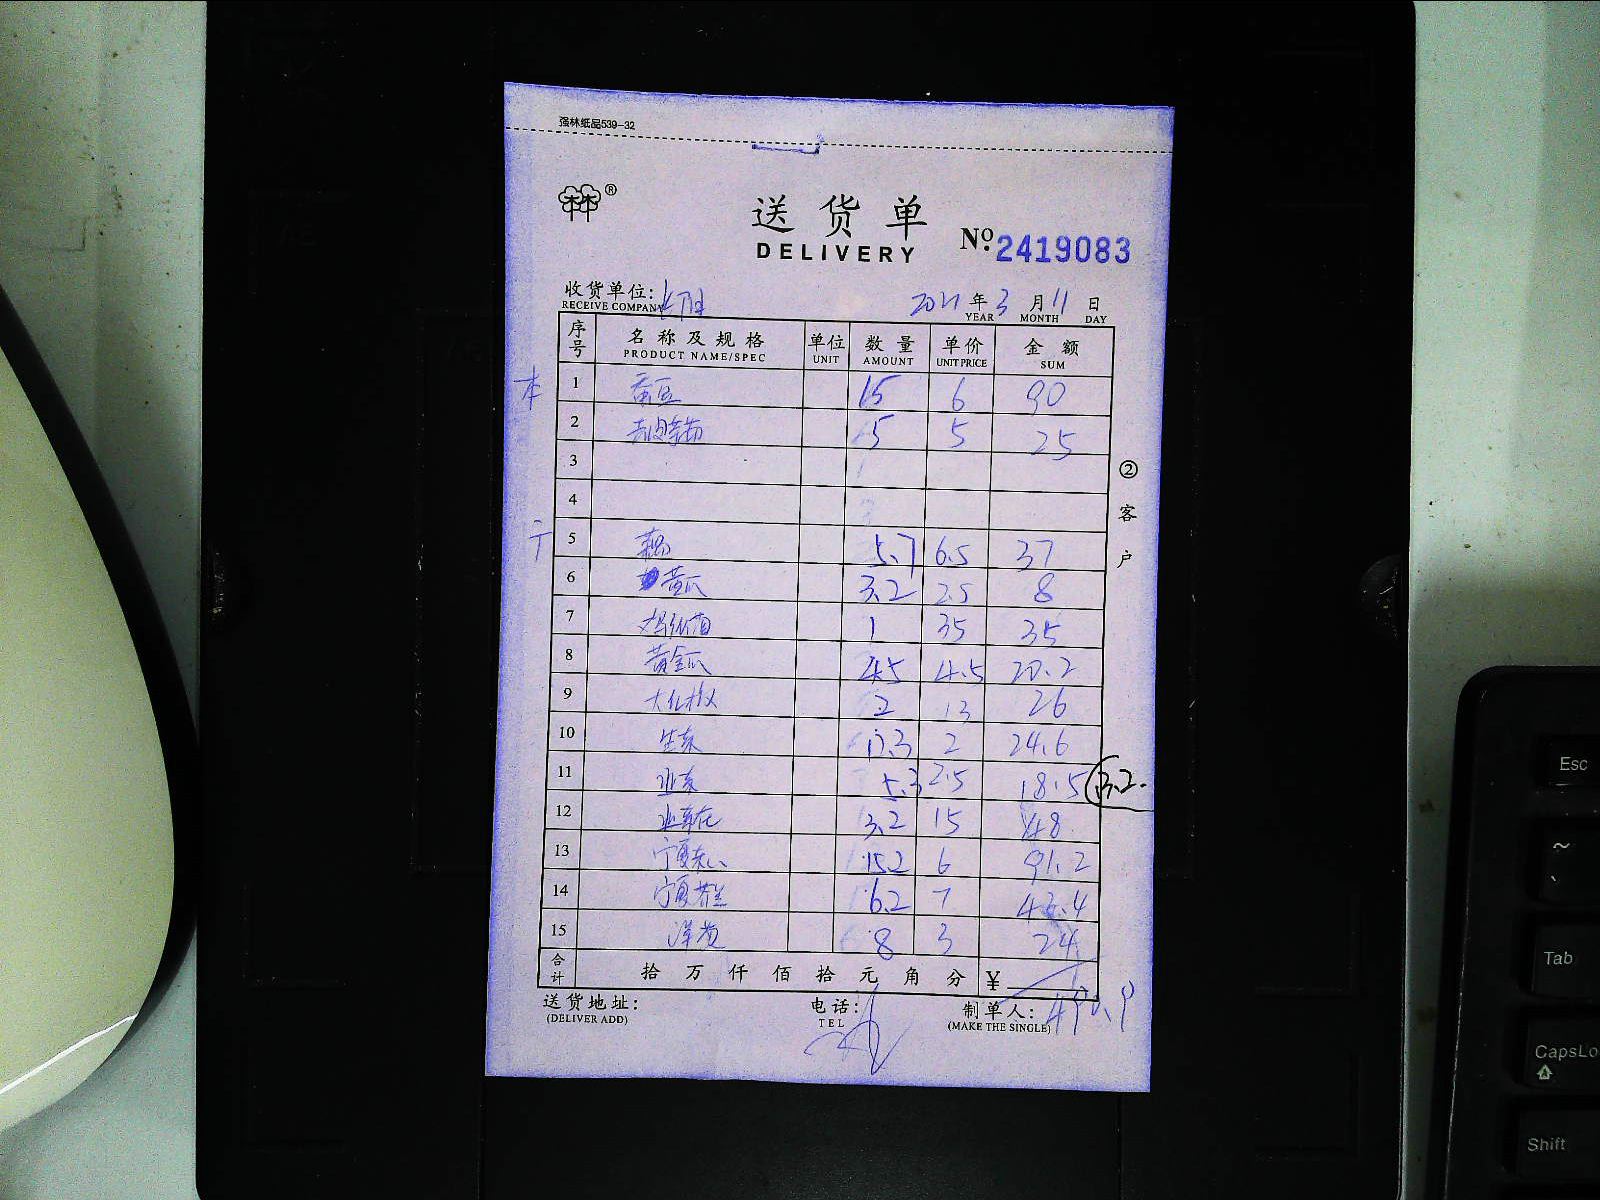 强林纸品539-32
林®
送货单
DELIVERY
No. 2419083
收货单位:
RECEIVE COMPANY
2021 年 3 月 11 日
YEAR MONTH DAY
序号 名称及规格 单位 数量 单价 金额
PRODUCT NAME/SPEC UNIT AMOUNT UNIT PRICE SUM
本 1 蚕豆 15 6 90
2 5 5 25
3
4
5 5.7 6.5 37
6 黄瓜 3.2 2.5 8
7 1 35 35
8 黄金瓜 4.5 4.5 20.2
9 2 13 26
10 生菜 12.3 2 24.6
11 5.3 2.5 18.5 13.2.
12 3.2 15 48
13 宁夏菜心 15.2 6 91.2
14 宁夏芥兰 6.2 7 43.4
15 8 3 24
合计 拾 万 仟 佰 拾 元 角 分 ¥
490.9
送货地址: 电话: 制单人:
(DELIVER ADD) TEL (MAKE THE SINGLE)
② 客户
Esc
~
Tab
CapsLo
Shift